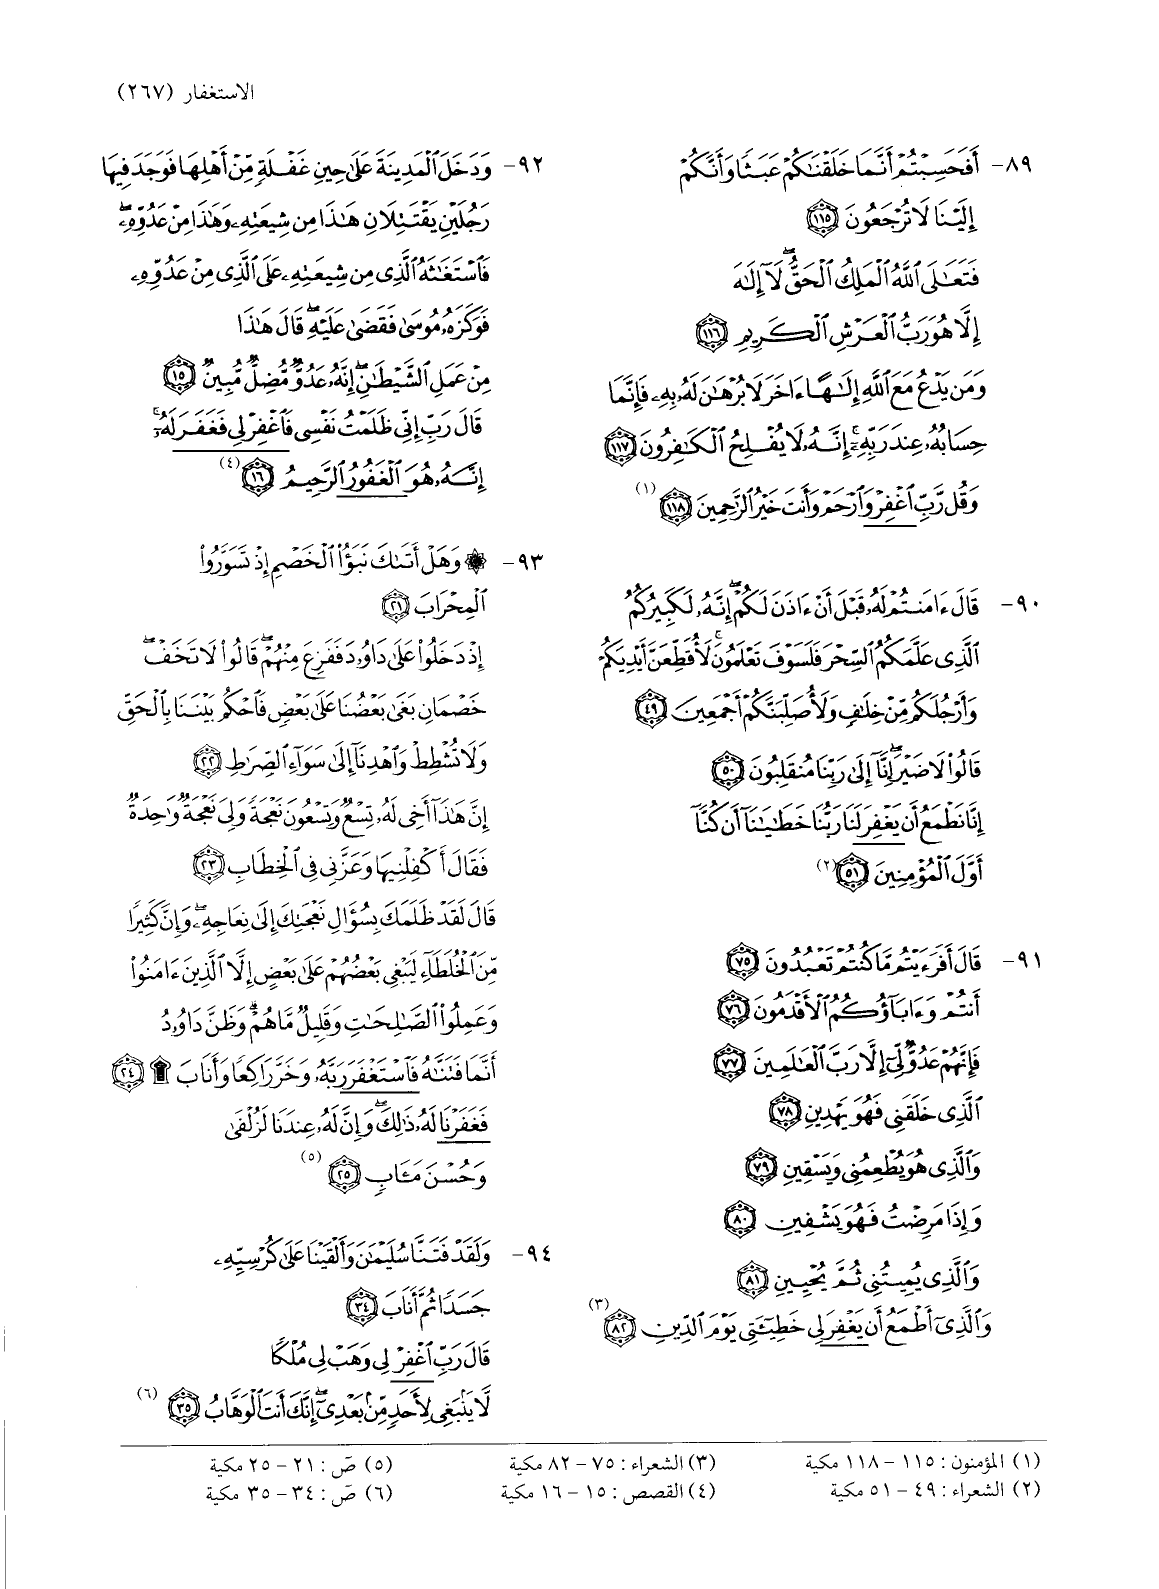 الاستغفار (٢٦٧)
٨٩- أَفَحَسِبْتُمْ أَنَّمَا خَلَقْنَٰكُمْ عَبَثًا وَأَنَّكُمْ
إِلَيْنَا لَا تُرْجَعُونَ ١١٥
فَتَعَٰلَى ٱللَّهُ ٱلْمَلِكُ ٱلْحَقُّ ۖ لَآ إِلَٰهَ
إِلَّا هُوَ رَبُّ ٱلْعَرْشِ ٱلْكَرِيمِ ١١٦
وَمَن يَدْعُ مَعَ ٱللَّهِ إِلَٰهًا ءَاخَرَ لَا بُرْهَٰنَ لَهُۥ بِهِۦ فَإِنَّمَا
حِسَابُهُۥ عِندَ رَبِّهِۦٓ ۚ إِنَّهُۥ لَا يُفْلِحُ ٱلْكَٰفِرُونَ ١١٧
وَقُل رَّبِّ ٱغْفِرْ وَٱرْحَمْ وَأَنتَ خَيْرُ ٱلرَّٰحِمِينَ ١١٨ (١)
٩٠- قَالَ ءَامَنتُمْ لَهُۥ قَبْلَ أَنْ ءَاذَنَ لَكُمْ ۖ إِنَّهُۥ لَكَبِيرُكُمُ
ٱلَّذِى عَلَّمَكُمُ ٱلسِّحْرَ فَلَسَوْفَ تَعْلَمُونَ ۚ لَأُقَطِّعَنَّ أَيْدِيَكُمْ
وَأَرْجُلَكُم مِّنْ خِلَٰفٍ وَلَأُصَلِّبَنَّكُمْ أَجْمَعِينَ ٤٩
قَالُوا۟ لَا ضَيْرَ ۖ إِنَّآ إِلَىٰ رَبِّنَا مُنقَلِبُونَ ٥٠
إِنَّا نَطْمَعُ أَن يَغْفِرَ لَنَا رَبُّنَا خَطَٰيَٰنَآ أَن كُنَّآ
أَوَّلَ ٱلْمُؤْمِنِينَ ٥١ (٢)
٩١- قَالَ أَفَرَءَيْتُم مَّا كُنتُمْ تَعْبُدُونَ ٧٥
أَنتُمْ وَءَابَآؤُكُمُ ٱلْأَقْدَمُونَ ٧٦
فَإِنَّهُمْ عَدُوٌّ لِّىٓ إِلَّا رَبَّ ٱلْعَٰلَمِينَ ٧٧
ٱلَّذِى خَلَقَنِى فَهُوَ يَهْدِينِ ٧٨
وَٱلَّذِى هُوَ يُطْعِمُنِى وَيَسْقِينِ ٧٩
وَإِذَا مَرِضْتُ فَهُوَ يَشْفِينِ ٨٠
وَٱلَّذِى يُمِيتُنِى ثُمَّ يُحْيِينِ ٨١
وَٱلَّذِىٓ أَطْمَعُ أَن يَغْفِرَ لِى خَطِيٓـَٔتِى يَوْمَ ٱلدِّينِ ٨٢ (٣)
٩٢- وَدَخَلَ ٱلْمَدِينَةَ عَلَىٰ حِينِ غَفْلَةٍ مِّنْ أَهْلِهَا فَوَجَدَ فِيهَا
رَجُلَيْنِ يَقْتَتِلَانِ هَٰذَا مِن شِيعَتِهِۦ وَهَٰذَا مِنْ عَدُوِّهِۦ ۖ
فَٱسْتَغَٰثَهُ ٱلَّذِى مِن شِيعَتِهِۦ عَلَى ٱلَّذِى مِنْ عَدُوِّهِۦ
فَوَكَزَهُۥ مُوسَىٰ فَقَضَىٰ عَلَيْهِ ۖ قَالَ هَٰذَا
مِنْ عَمَلِ ٱلشَّيْطَٰنِ ۖ إِنَّهُۥ عَدُوٌّ مُّضِلٌّ مُّبِينٌ ١٥
قَالَ رَبِّ إِنِّى ظَلَمْتُ نَفْسِى فَٱغْفِرْ لِى فَغَفَرَ لَهُۥٓ ۚ
إِنَّهُۥ هُوَ ٱلْغَفُورُ ٱلرَّحِيمُ ١٦ (٤)
٩٣- ۞ وَهَلْ أَتَىٰكَ نَبَؤُا۟ ٱلْخَصْمِ إِذْ تَسَوَّرُوا۟
ٱلْمِحْرَابَ ٢١
إِذْ دَخَلُوا۟ عَلَىٰ دَاوُۥدَ فَفَزِعَ مِنْهُمْ ۖ قَالُوا۟ لَا تَخَفْ ۖ
خَصْمَانِ بَغَىٰ بَعْضُنَا عَلَىٰ بَعْضٍ فَٱحْكُم بَيْنَنَا بِٱلْحَقِّ
وَلَا تُشْطِطْ وَٱهْدِنَآ إِلَىٰ سَوَآءِ ٱلصِّرَٰطِ ٢٢
إِنَّ هَٰذَآ أَخِى لَهُۥ تِسْعٌ وَتِسْعُونَ نَعْجَةً وَلِىَ نَعْجَةٌ وَٰحِدَةٌ
فَقَالَ أَكْفِلْنِيهَا وَعَزَّنِى فِى ٱلْخِطَابِ ٢٣
قَالَ لَقَدْ ظَلَمَكَ بِسُؤَالِ نَعْجَتِكَ إِلَىٰ نِعَاجِهِۦ ۖ وَإِنَّ كَثِيرًا
مِّنَ ٱلْخُلَطَآءِ لَيَبْغِى بَعْضُهُمْ عَلَىٰ بَعْضٍ إِلَّا ٱلَّذِينَ ءَامَنُوا۟
وَعَمِلُوا۟ ٱلصَّٰلِحَٰتِ وَقَلِيلٌ مَّا هُمْ ۗ وَظَنَّ دَاوُۥدُ
أَنَّمَا فَتَنَّٰهُ فَٱسْتَغْفَرَ رَبَّهُۥ وَخَرَّ رَاكِعًا وَأَنَابَ ۩ ٢٤
فَغَفَرْنَا لَهُۥ ذَٰلِكَ ۖ وَإِنَّ لَهُۥ عِندَنَا لَزُلْفَىٰ
وَحُسْنَ مَـَٔابٍ ٢٥ (٥)
٩٤- وَلَقَدْ فَتَنَّا سُلَيْمَٰنَ وَأَلْقَيْنَا عَلَىٰ كُرْسِيِّهِۦ
جَسَدًا ثُمَّ أَنَابَ ٣٤
قَالَ رَبِّ ٱغْفِرْ لِى وَهَبْ لِى مُلْكًا
لَّا يَنۢبَغِى لِأَحَدٍ مِّنۢ بَعْدِىٓ ۖ إِنَّكَ أَنتَ ٱلْوَهَّابُ ٣٥ (٦)
(١) المؤمنون : ١١٥ – ١١٨ مكية
(٢) الشعراء : ٤٩ – ٥١ مكية
(٣) الشعراء : ٧٥ – ٨٢ مكية
(٤) القصص : ١٥ – ١٦ مكية
(٥) صَ : ٢١ – ٢٥ مكية
(٦) صَ : ٣٤ – ٣٥ مكية